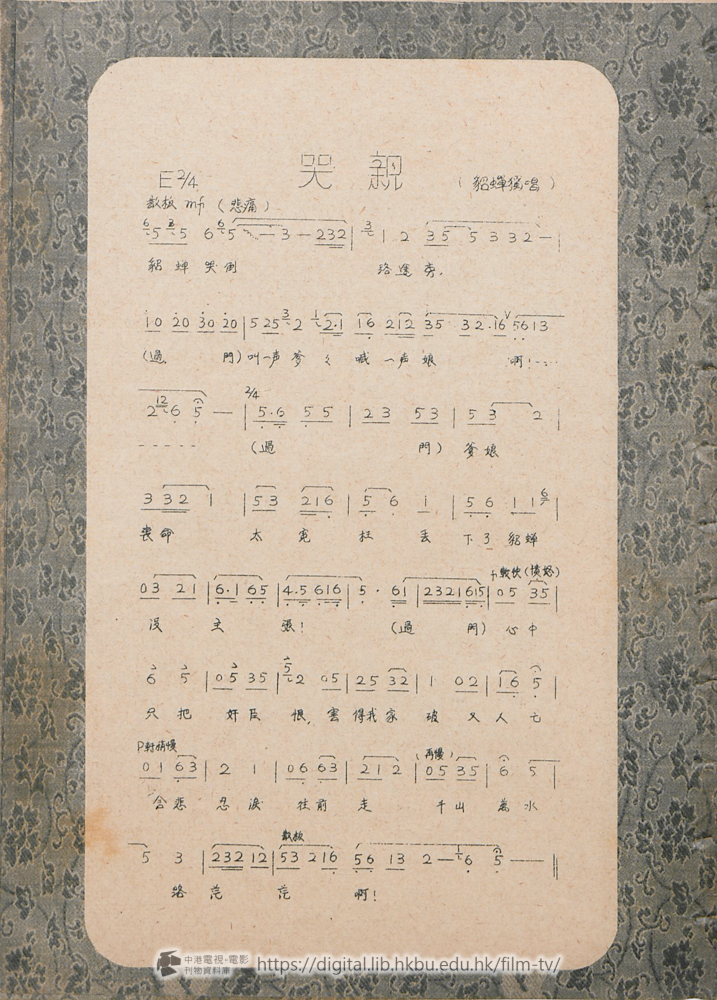 哭親
E 2/4
(貂蟬獨唱)
散板 mf (悲痛)
6 5 3 5 6 6 5 — 3 — 232 | 3 1 2 35 5 3 3 2 — |
貂蟬哭倒 路邊旁.
10 20 30 20 | 5 25 3 2 1 2·1 16 212 35 32·16 V 5613
(過門) 叫一声爹々喊一声娘 啊!……
2 12 6 5 — | 2/4 5·6 5 5 | 23 53 | 53 2 |
----- (過門) 爹娘
3 32 1 | 53 216 | 5 6 1 | 56 11 6 |
喪命 太冤枉 丟下了貂蟬
03 21 | 6·1 65 | 4·5 616 | 5 · 61 | 2321 615 | 05 35 |
沒主張! (過門) 心中
中較快(憤怒)
6 5 | 05 35 | 5 2 05 | 25 32 | 1 02 | 16 5 |
只把奸臣恨, 害得我家破又人亡
P 較稍慢
01 63 | 2 1 | 06 63 | 21 2 | 05 35 | 6 5
(再慢)
含悲忍淚往前走 千山萬水
散板
5 3 | 232 12 | 53 216 | 56 13 2 — 1 6 5 — — ||
路茫茫 啊!
中港電視-電影
刊物資料庫
https://digital.lib.hkbu.edu.hk/film-tv/